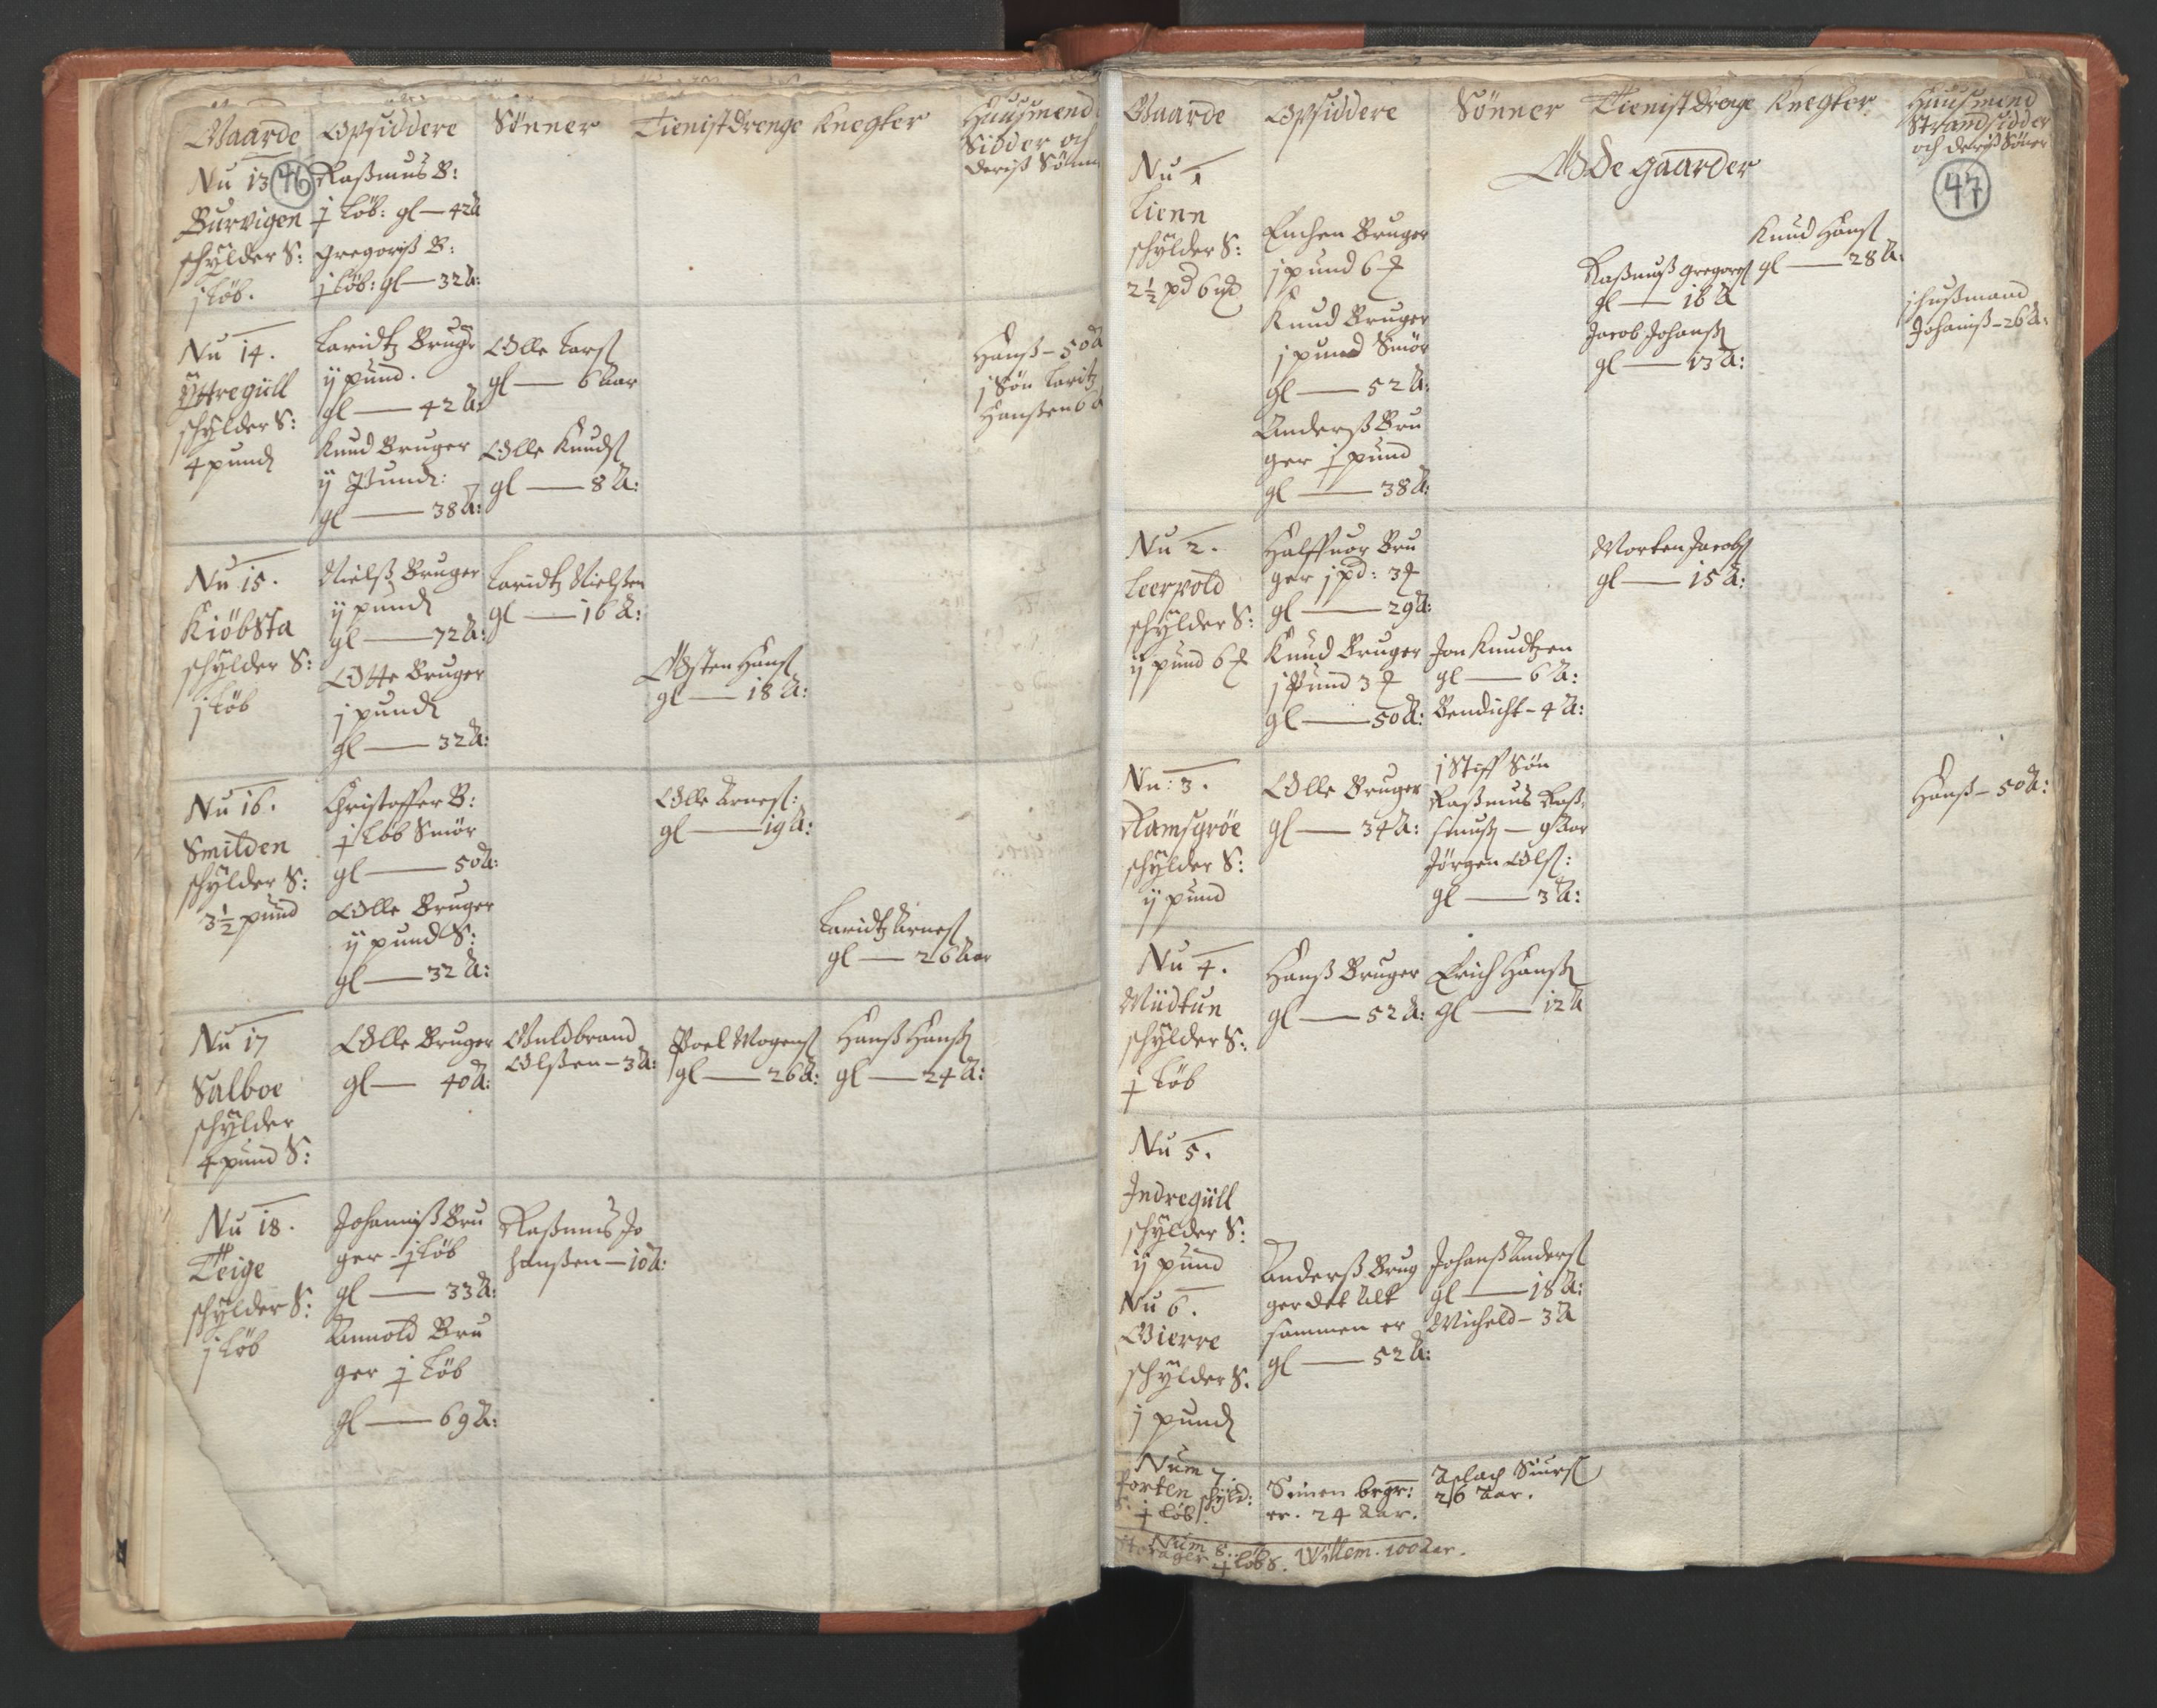 Gaarde Opsiddere Sønner Tienistdrenge Knegter Huusmend
Sidder och
deriß Sønn
Nu 13 46
Burvigen
schylder S:
j Løb.
Raßmus B:
½ Løb: gl — 42 A
Gregoriß B:
½ Løb: gl — 32 A:
Nu 14.
Ÿttregüll
schylder S:
4 pund
Laridtz Bruger
ij pund.
gl — 42 A:
Knud Bruger
ij Pund:
gl — 38 A:
Olle Larß
gl — 6 Aar
Olle Knudß
gl — 8 A:
Hanß – 50 A
j Søn Laritz
Hanßen 6 A
Nu 15.
Kiöbsta
schylder S:
j Løb
Nielß Bruger
ij pund
gl — 72 A:
Otte Bruger
j pund
gl — 32 A:
Laridtz Nielßen
gl — 16 A:
Østen Hanß
gl — 18 A:
Nu 16.
Smilden
schylder S:
3½ pund
Christoffer B:
½ Løb Smör
gl — 50 A:
Olle Bruger
ij pund S:
gl — 32 A:
Olle Arneß:
gl — 19 A:
Laridtz Arneß
gl — 26 Aar
Nu 17
Salboe
schylder
4 pund S:
Olle Bruger
gl — 40 A:
Guldbrand
Olßen – 3 A:
Poel Mogenß
gl — 26 A:
Hanß Hanß
gl — 24 A:
Nu 18.
Teige
schylder S:
j Løb
Johanniß Bru
ger ½ Løb
gl — 33 A:
Annold Bru
ger ½ Løb
gl — 69 A:
Raßmus Jo
hanßen – 10 A:
Gaarde Opsiddere Sønner Tienistdrenge Knegter
Huusmend
Strandsidder
och deriß Söner
47
Øde gaarder
Nu 1
Lienn
schylder S:
2½ pd 6
Enchen Bruger
j pund 6
Knud Bruger
j pund Smör
gl — 52 A:
Anderß Bru
ger ½ pund
gl — 38 A:
Raßmuß Gregorß
gl — 16 A
Jacob Johanß
gl — 13 A:
Knud Hanß
gl — 28 A.
j Hußmand
Johaniß – 26 A:
Nu 2.
Leervold
schylder S:
ij pund 6
Halffuor Bru
ger j pd: 3
gl — 29 A:
Knud Bruger
j Pund 3
gl — 50 A:
Jon Knudtzen
gl — 6 A:
Bendicht – 4 A:
Morten Jacobß
gl — 15 A:
Nu: 3.
Ramsgröe
schylder S:
ij pund
Olle Bruger
gl — 34 A:
j Stiff Søn
Raßmus Raß
smuß — 9 Aar
Jörgen Olß:
gl — 3 A:
Hanß – 50 A:
Nu 4.
Miidtun
schylder S:
½ Løb
Hanß Bruger
gl — 52 A:
Erich Hanß
gl — 12 A
Nu 5.
Indregüll
schylder S:
ij pund
Nu 6.
Gierre
schylder S.
j pund
Anderß Brug
ger det alt
sammen er
gl — 52 A:
Johanß Anderß
gl — 18 A:
Micheld – 3 A
Num 7.
schyld:
S. ½ Løb.
Simen brgr:
er. 24 Aar.
Aslach Siurß
26 Aar.
Num 8.
½ Løb S. Willem. 100 Aar.